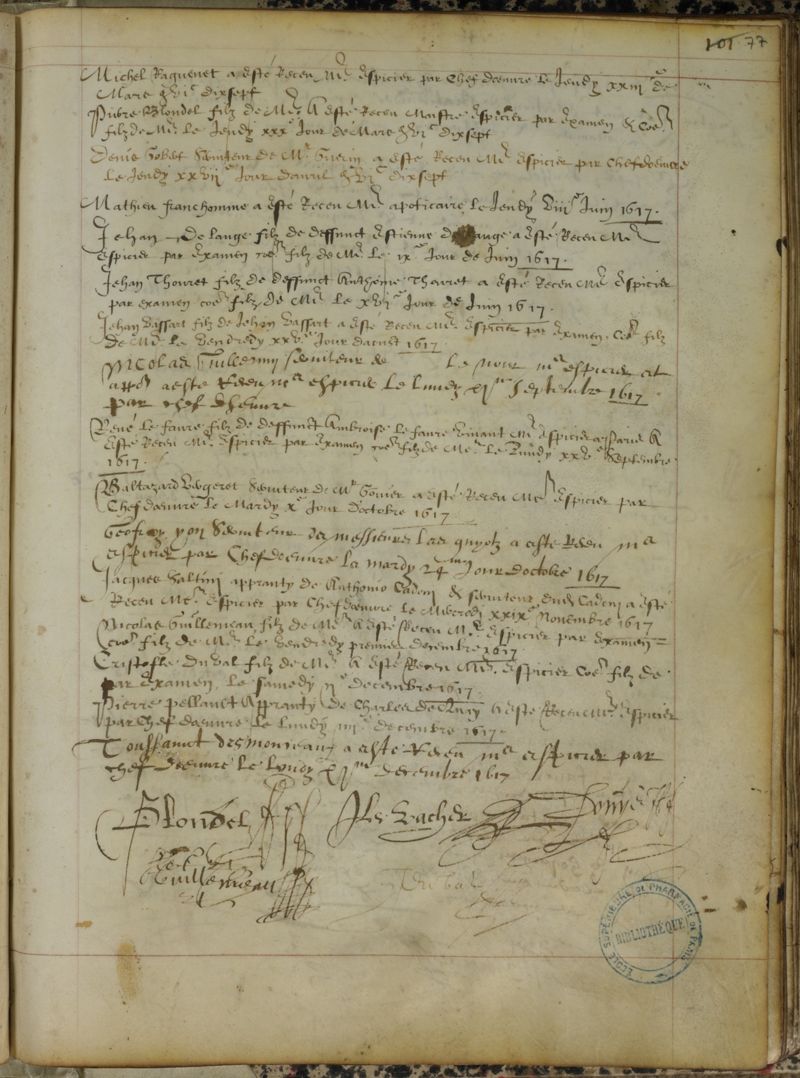 101 77
Michel Raquenet a esté Receu Me espicier par Chef doeuvre Le Jeudy xxiii de
Mars dixsept
Pierre Blondel filz de Me A esté Receu Maistre espicier par examen et Coe
filz de Me Le Jeudy xxx Jour de Mars dixsept
Denis Gobet serviteur de Mr Guerin a esté Receu Me espicier par Chefdoeuvre
Le Jeudy xxvii Jour davril dixsept
Mathieu franchomme a esté Receu Me apoticaire Le Jeudy viii Juin 1617.
Jehan De lange filz de deffunct Estienne De Lange a esté Receu Me
espicier par examen coe filz de Me Le ix Jour de Juin 1617.
Jehan Thouret filz de deffunct Anthoine Thouret a esté Receu Me espicier
par examen coe filz de Me Le xvi Jour de Juin 1617.
Jehan Bassart filz de Jehan Bassart a esté Receu Me espicier par examen. Coe filz
de Me Le Vendredy xxv Jour daoust 1617
Nicolas Guillemin serviteur de Le noir me espicier et
appo a este Receu me espicier Le Lundy xi Septembre 1617
par chef dheuvre
René Le faivre filz de deffunct Ambroise Le faure vivant Me espicier a Paris A
esté Receu Me espicier par Examen coe filz de Me Le Lundy xxv Septembre
1617.
Baltazard Bergeret serviteur de Mr Gonier a esté Receu Me espicier par
Chef doeuvre Le Mardy x Jour doctobre 1617
Geofroy yon Serviteur de messieurs Les guyotz a este Receu me
espicier par Chefdoeuvre La mardy 24 Jour doctobre 1617
Jacques Saltini appranty de Anthonio Cadeni et serviteur dud Cadeni a esté
Receu Me espicier par Chefdoeuvre Le Mecredi xxix Novembre 1617
Nicolas Guillemeau filz de Me A esté Receu Me espicier par examen
coe filz de Me Le vendredy premier decembre 1617
Cristofle Duval filz de Me A esté Receu Me espicier Coe filz de
par Examen Le samedy ii decembre 1617.
Pierre Pellault Appranty de Charles de A esté Receu Me espicier
par Chef doeuvre Le Lundy iiii decembre 1617.
Toussainct desmonceaux a este Receu me espicier par
chef doeuvre Le Lundy xi decembre 1617
Blondel J Le Vacher
Guillemeau
ÉCOLE SUPÉRIEURE DE PHARMACIE DE PARIS
BIBLIOTHÈQUE